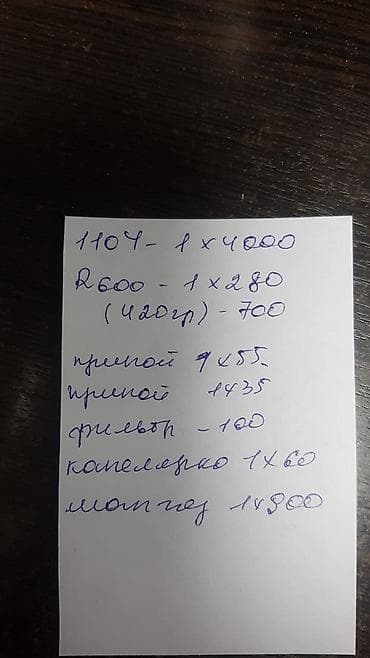 110Ч - 1 x 4000
R600 - 1 x 280
(420гр) - 700
припой 1x55
припой 1x35
фильтр - 100
капелярко 1x60
мап газ 1x900